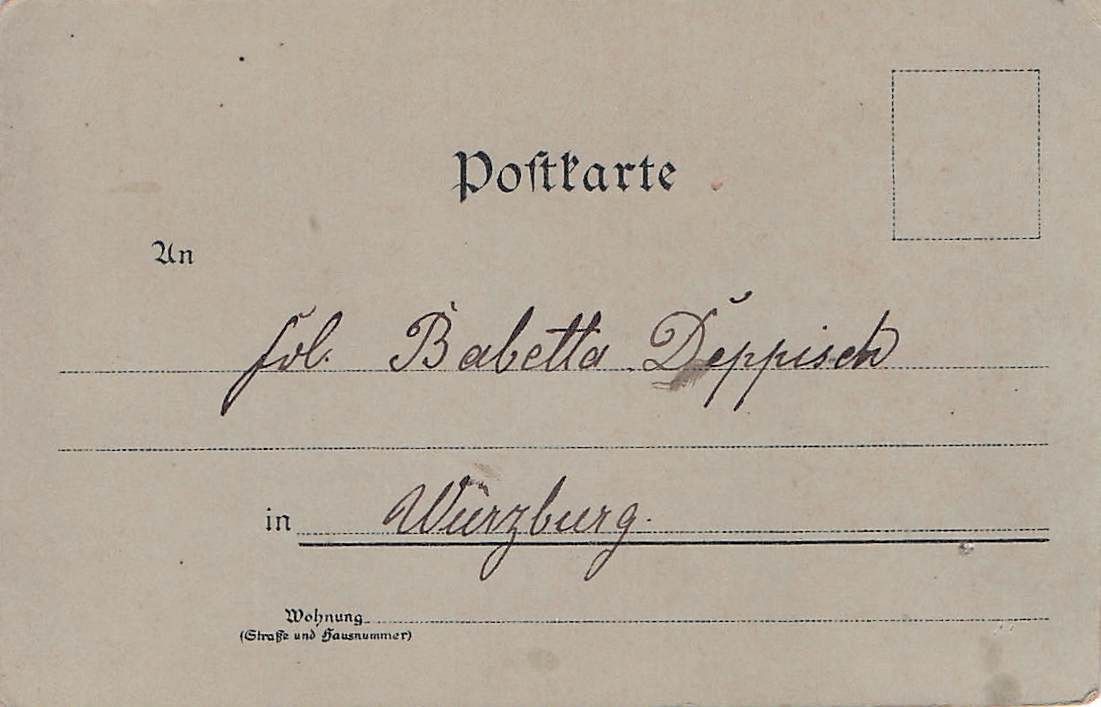 Postkarte
An
frl. Babetta Deppisch
in Würzburg.
Wohnung
(Straße und Hausnummer)